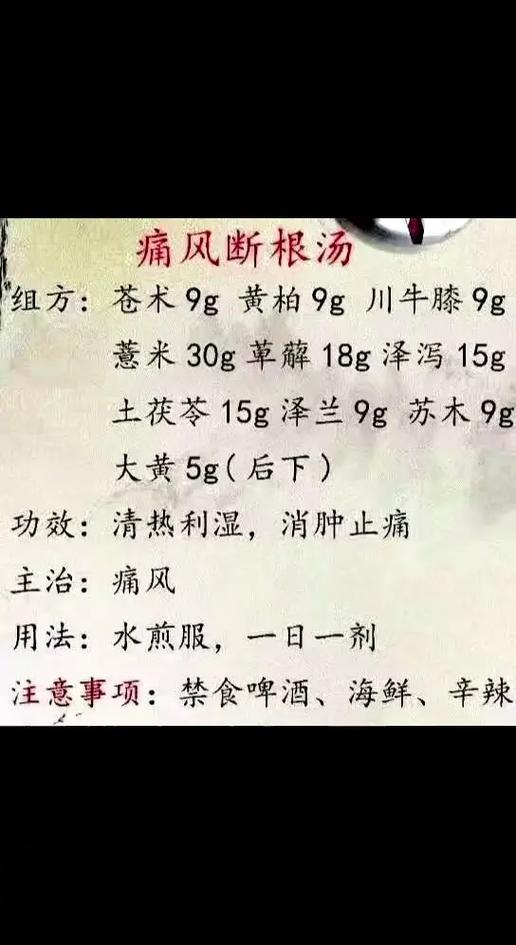 痛风断根汤
组方：苍术9g 黄柏9g 川牛膝9g
薏米30g 萆薢18g 泽泻15g
土茯苓15g 泽兰9g 苏木9g
大黄5g(后下)
功效：清热利湿，消肿止痛
主治：痛风
用法：水煎服，一日一剂
注意事项：禁食啤酒、海鲜、辛辣